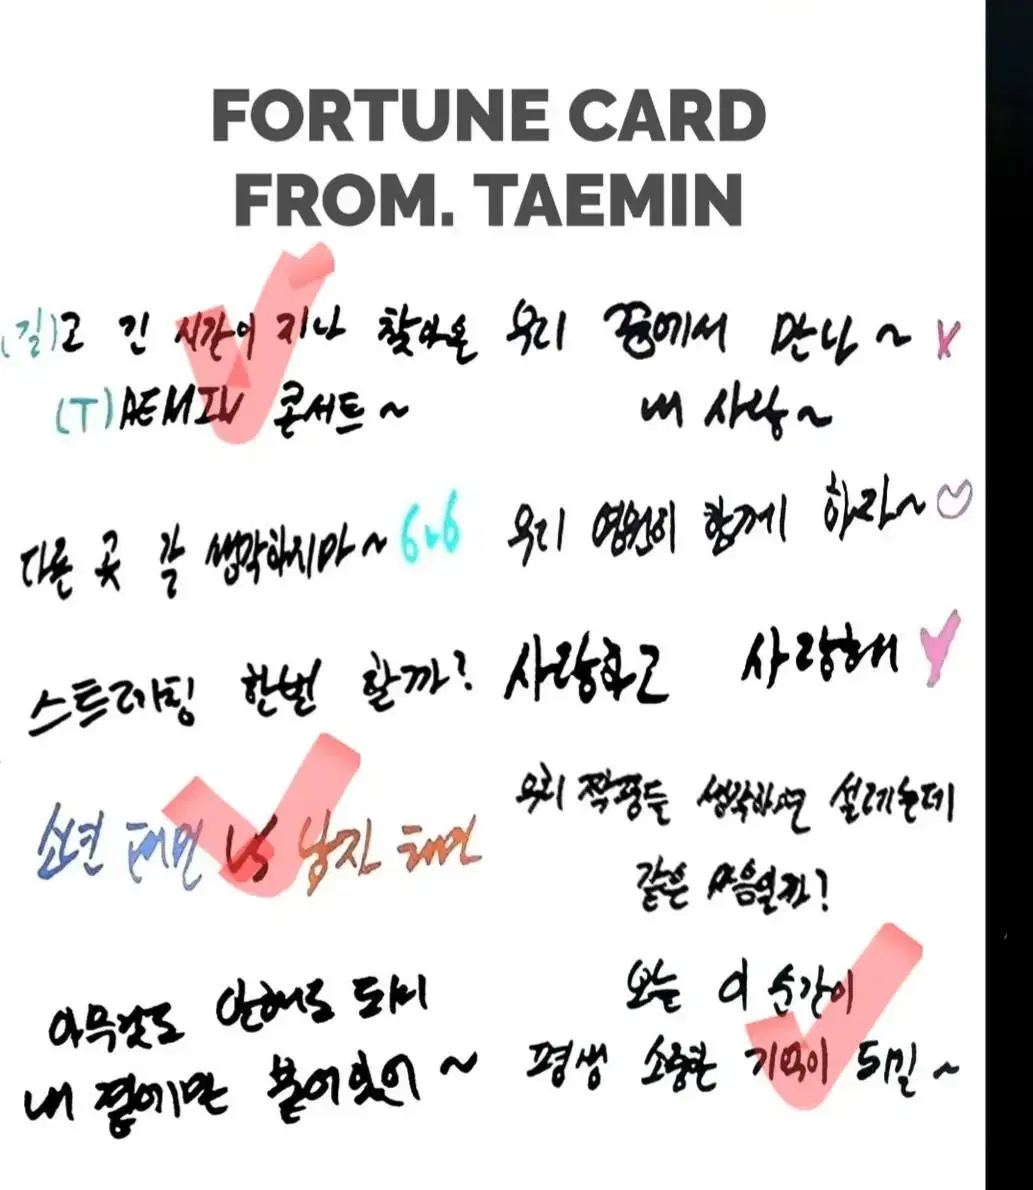 FORTUNE CARD
FROM. TAEMIN
(길)고 긴 시간이 지나 찾아온
(T)AEMIN 콘서트~
우리 꿈에서 만나~
내 사랑~
다른 곳 갈 생각하지마~ 6v6
우리 영원히 함께 하자~♡
스트레칭 한번 할까?
사랑하고 사랑해
소년 태민 VS 남자 태민
우리 짝꿍들 생각하면 설레는데
같은 마음일까?
아무것도 안해도 되니
내 곁에만 붙어있어~
오늘 이 순간이
평생 소중한 기억이 되길~